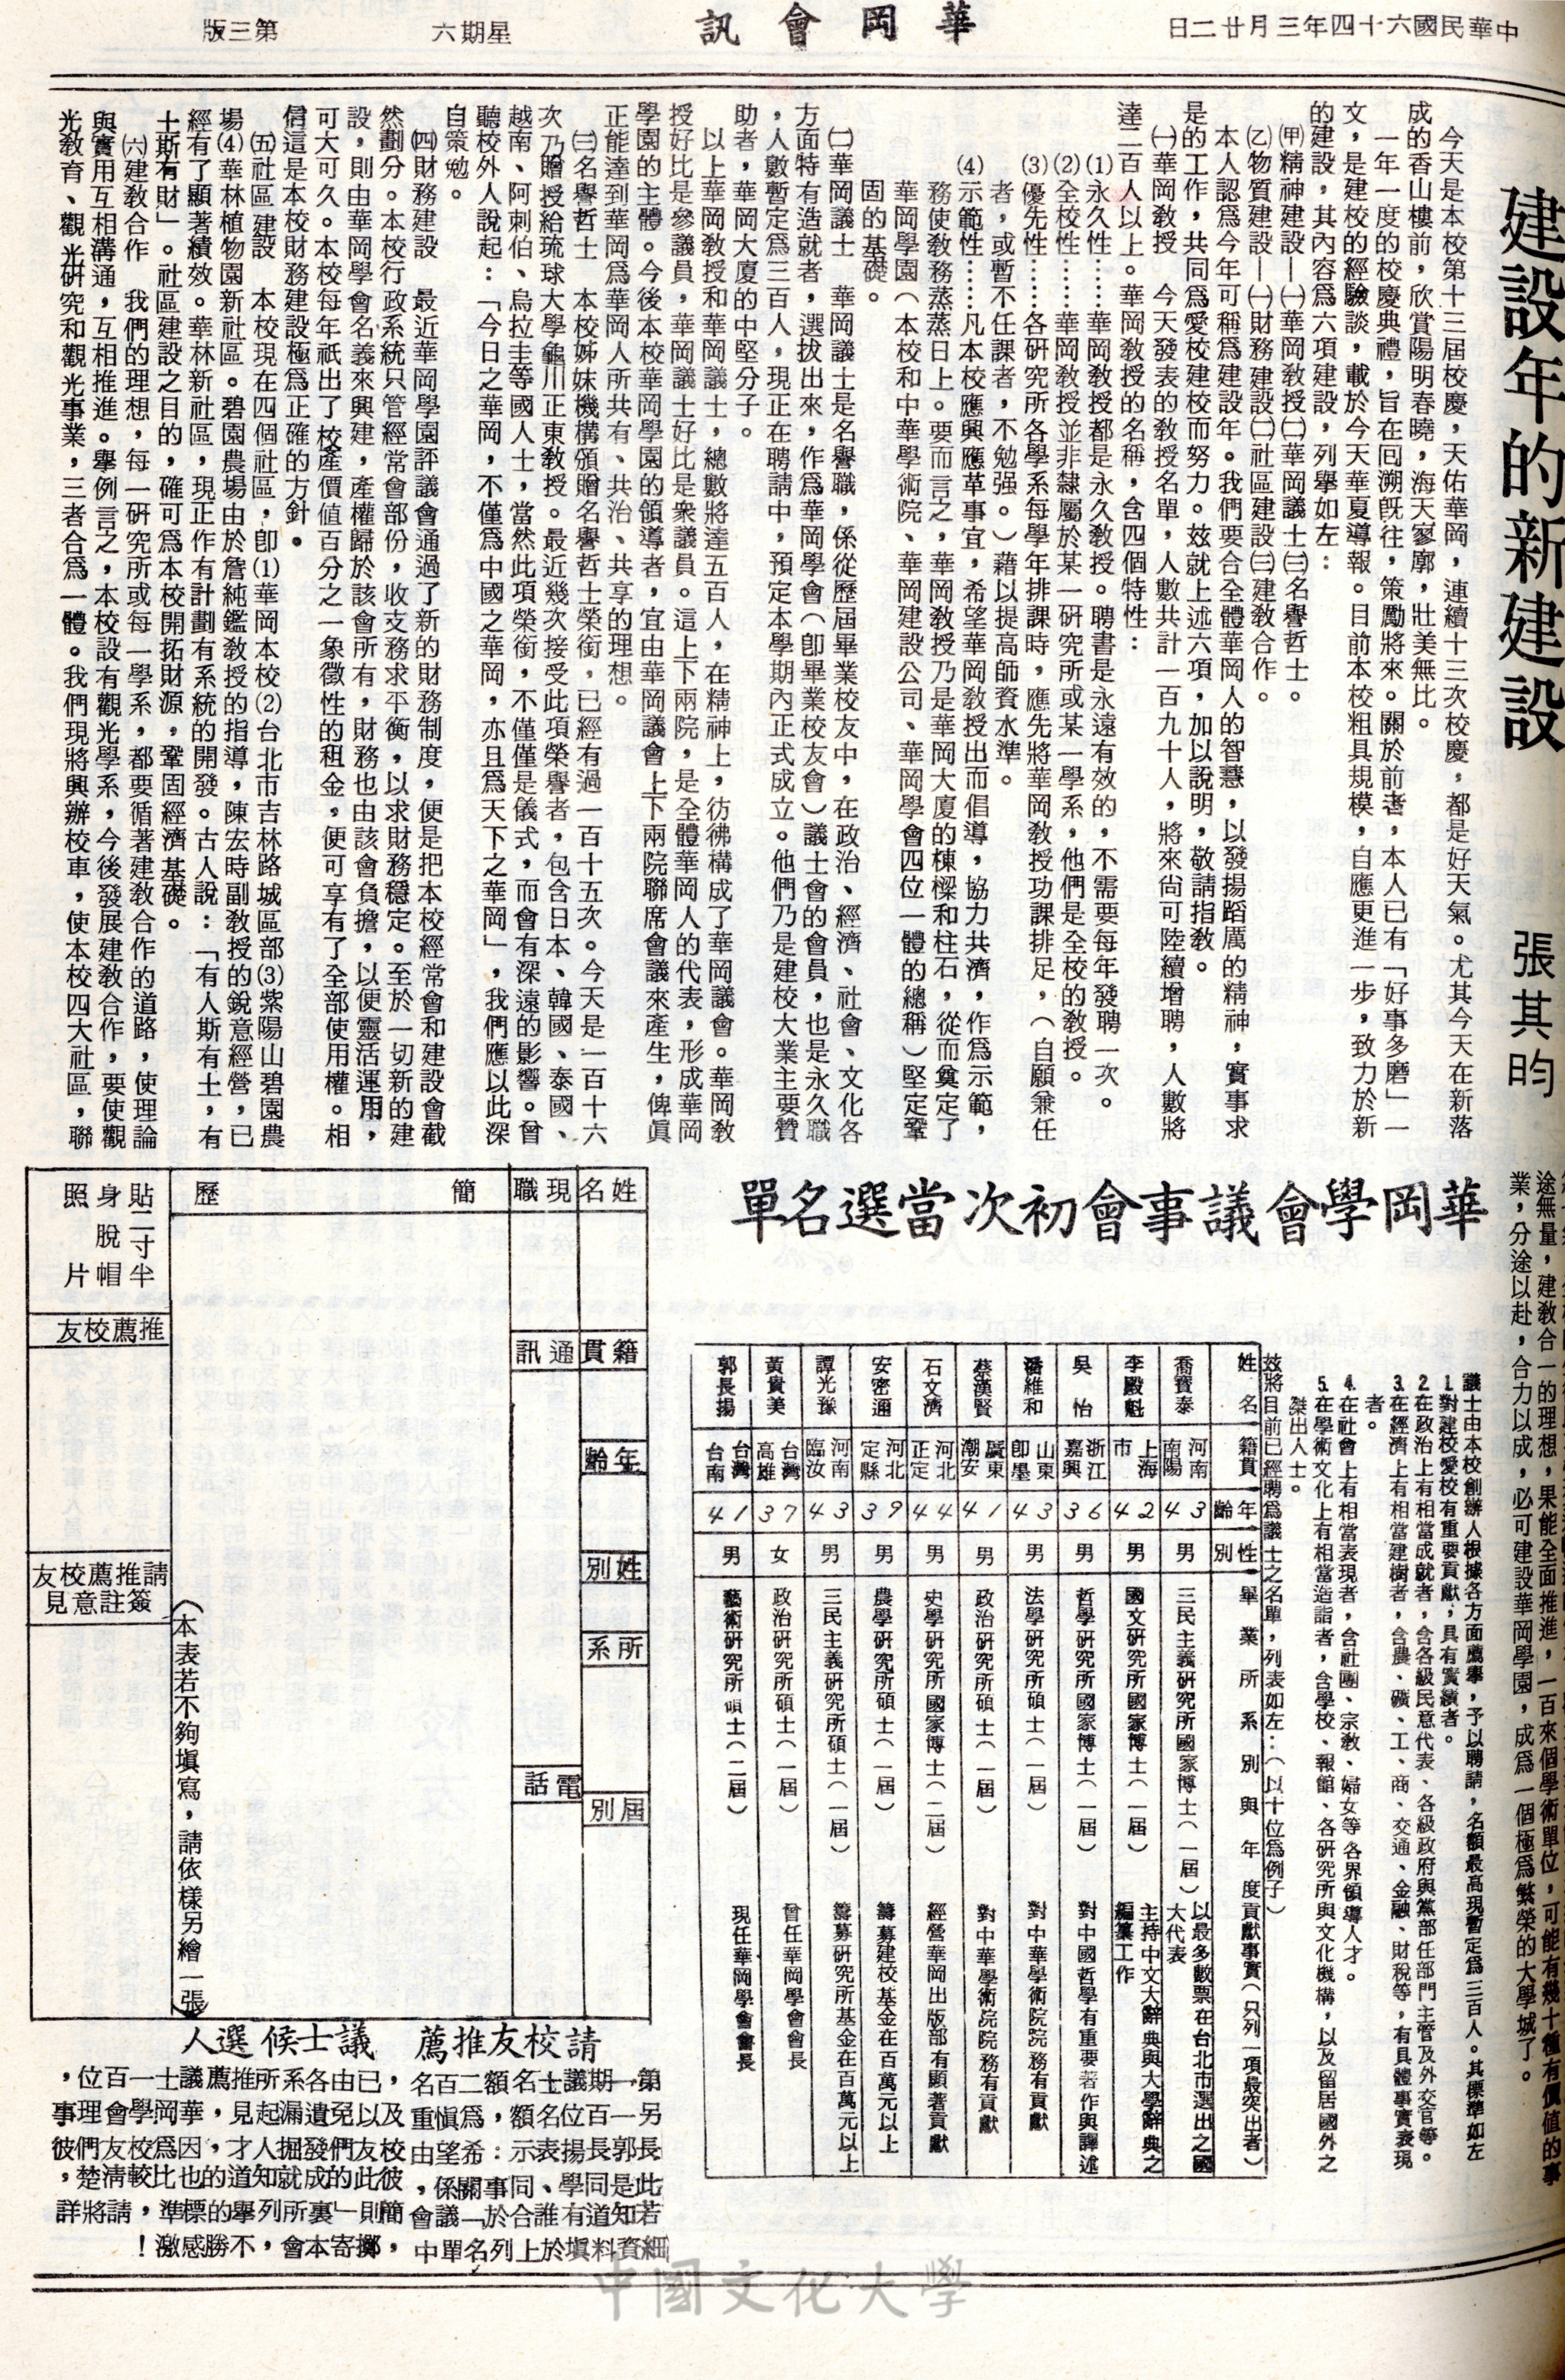 中華民國六十四年三月廿二日
華岡會訊
星期六
第三版
建設年的新建設
張其昀
今天是本校第十三屆校慶，天佑華岡，連續十三次校慶，都是好天氣。尤其今天在新落
成的香山樓前，欣賞陽明春曉，海天寥廓，壯美無比。
一年一度的校慶典禮，旨在回溯既往，策勵將來。關於前者，本人已有「好事多磨」一
文，是建校的經驗談，載於今天華夏導報。目前本校粗具規模，自應更進一步，致力於新
的建設，其內容爲六項建設，列舉如左：
㈙精神建設—㈠華岡教授㈡華岡議士㈢名譽哲士。
㈚物質建設—㈠財務建設㈡社區建設㈢建教合作。
本人認爲今年可稱爲建設年。我們要合全體華岡人的智慧，以發揚蹈厲的精神，實事求
是的工作，共同爲愛校建校而努力。玆就上述六項，加以說明，敬請指教。
㈠華岡教授　今天發表的教授名單，人數共計一百九十人，將來尙可陸續增聘，人數將
達二百人以上。華岡教授的名稱，含四個特性：
⑴永久性……華岡教授都是永久教授。聘書是永遠有效的，不需要每年發聘一次。
⑵全校性……華岡教授並非隸屬於某一研究所或某一學系，他們是全校的教授。
⑶優先性……各研究所各學系每學年排課時，應先將華岡教授功課排足，（自願兼任
者，或暫不任課者，不勉强。）藉以提高師資水準。
⑷示範性……凡本校應興應革事宜，希望華岡教授出而倡導，協力共濟，作爲示範，
務使教務蒸蒸日上。要而言之，華岡教授乃是華岡大廈的棟樑和柱石，從而奠定了
華岡學園（本校和中華學術院、華岡建設公司、華岡學會四位一體的總稱）堅定鞏
固的基礎。
㈡華岡議士　華岡議士是名譽職，係從歷屆畢業校友中，在政治、經濟、社會、文化各
方面特有造就者，選拔出來，作爲華岡學會（卽畢業校友會）議士會的會員，也是永久職
，人數暫定爲三百人，現正在聘請中，預定本學期內正式成立。他們乃是建校大業主要贊
助者，華岡大廈的中堅分子。
以上華岡教授和華岡議士，總數將達五百人，在精神上，彷彿構成了華岡議會。華岡教
授好比是參議員，華岡議士好比是衆議員。這上下兩院，是全體華岡人的代表，形成華岡
學園的主體。今後本校華岡學園的領導者，宜由華岡議會上下兩院聯席會議來產生，俾眞
正能達到華岡爲華岡人所共有、共治、共享的理想。
㈢名譽哲士　本校姊妹機構頒贈名譽哲士榮銜，已經有過一百十五次。今天是一百十六
次乃贈授給琉球大學龜川正東教授。最近幾次接受此項榮譽者，包含日本、韓國、泰國、
越南、阿刺伯、烏拉圭等國人士，當然此項榮銜，不僅僅是儀式，而會有深遠的影響。曾
聽校外人說起：「今日之華岡，不僅爲中國之華岡，亦且爲天下之華岡」，我們應以此深
自策勉。
㈣財務建設　最近華岡學園評議會通過了新的財務制度，便是把本校經常會和建設會截
然劃分。本校行政系統只管經常會部份，收支務求平衡，以求財務穩定。至於一切新的建
設，則由華岡學會名義來興建，產權歸於該會所有，財務也由該會負擔，以便靈活運用，
可大可久。本校每年祇出了校產價值百分之一象徵性的租金，便可享有了全部使用權。相
信這是本校財務建設極爲正確的方針。
㈤社區建設　本校現在四個社區，卽⑴華岡本校⑵台北市吉林路城區部⑶紫陽山碧園農
場⑷華林植物園新社區。碧園農場由於詹純鑑教授的指導，陳宏時副教授的銳意經營，已
經有了顯著績效。華林新社區，現正作有計劃有系統的開發。古人說：「有人斯有土，有
土斯有財」。社區建設之目的，確可爲本校開拓財源，鞏固經濟基礎。
㈥建教合作　我們的理想，每一研究所或每一學系，都要循著建教合作的道路，使理論
與實用互相溝通，互相推進。舉例言之，本校設有觀光學系，今後發展建教合作，要使觀
光教育、觀光研究和觀光事業，三者合爲一體。我們現將興辦校車，使本校四大社區，聯
途無量，建教合一的理想，果能全面推進，一百來個學術單位，可能有幾十種有價值的事
業，分途以赴，合力以成，必可建設華岡學園，成爲一個極爲繁榮的大學城了。
華岡學會議事會初次當選名單
議士由本校創辦人根據各方面薦舉，予以聘請，名額最高現暫定爲三百人。其標準如左
1.對建校愛校有重要貢獻，具有實績者。
2.在政治上有相當成就者，含各級民意代表、各級政府與黨部任部門主管及外交官等。
3.在經濟上有相當建樹者，含農、礦、工、商、交通、金融、財稅等，有具體事實表現
者。
4.在社會上有相當表現者，含社團、宗教、婦女等各界領導人才。
5.在學術文化上有相當造詣者，含學校、報館、各研究所與文化機構，以及留居國外之
傑出人士。
玆將目前已經聘爲議士之名單，列表如左：（以十位爲例子）
姓名　籍貫　年齡　性別　畢業所系別與年度　貢獻事實（只列一項最突出者）
喬寶泰　河南南陽　43　男　三民主義研究所國家博士（一屆）　以最多數票在台北市選出之國大代表
李殿魁　上海市　42　男　國文研究所國家博士（一屆）　主持中文大辭典與大學辭典之編纂工作
吳怡　浙江嘉興　36　男　哲學研究所國家博士（一屆）　對中國哲學有重要著作與譯述
潘維和　山東卽墨　43　男　法學研究所碩士（一屆）　對中華學術院院務有貢獻
蔡漢賢　廣東潮安　41　男　政治研究所碩士（一屆）　對中華學術院院務有貢獻
石文濟　河北正定　44　男　史學研究所國家博士（二屆）　經營華岡出版部有顯著貢獻
安密通　河北定縣　39　男　農學研究所碩士（一屆）　籌募建校基金在百萬元以上
譚光豫　河南臨汝　43　男　三民主義研究所碩士（一屆）　籌募研究所基金在百萬元以上
黃貴美　台灣高雄　37　女　政治研究所碩士（一屆）　曾任華岡學會會長
郭長揚　台灣台南　41　男　藝術研究所碩士（二屆）　現任華岡學會會長
姓名
籍貫
年齡
姓別
所系
屆別
現職
通訊
電話
簡歷
（本表若不夠塡寫，請依樣另繪一張）
貼二寸半
身脫帽
照片
推薦校友
請推薦校友
簽註意見
請校友推薦　議士候選人
第一期議士名額二百名，
另一百位名額，爲愼重由
郭長揚表示：希望係會
長是同學、同事關係，
此知道有誰合於「議會中
若資料塡於上列名單
，及已由各系所推薦議士一百位，
校友以免遺漏起見，華岡學會理事
彼此們發掘人才，因爲校友們彼
簡則的成就知道的也比較清楚，
，擲寄「本裏會所列，不舉勝的感標準激，請將詳
細
！
中國文化大學